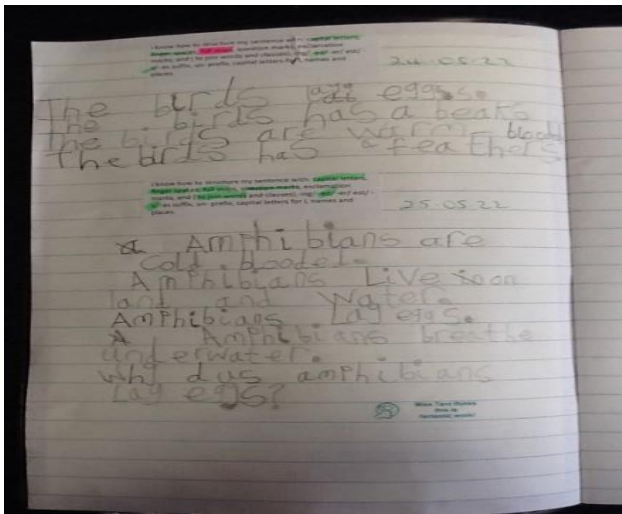 I know how to structure my sentence with: capital letters,
finger spaces, full stops, question marks, exclamation
marks, and (to join words and clauses), -ing/ -ed/ -er/ est/ -
s/ -es suffix, un- prefix, capital letters for I, names and
places.
24-05-22
The birds lay eggs.
The birds has a beaks
the birds are warm blooded
the birds has a feathers
I know how to structure my sentence with: capital letters,
finger spaces, full stops, question marks, exclamation
marks, and (to join words and clauses), -ing/ -ed/ -er/ est/ -
s/ -es suffix, un- prefix, capital letters for I, names and
places.
25-05-22
Amphibians are
cold blooded.
Amphibians Live on
land and Water.
Amphibians Lay eggs.
Amphibians breathe
underwater.
why dus amphibians
Lay eggs?
this is
fantastic work!